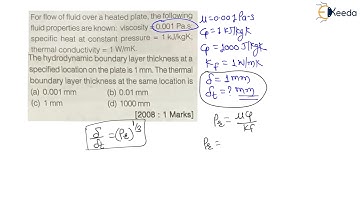 Ekeeda
For flow of fluid over a heated plate, the following
fluid properties are known: viscosity = 0.001 Pa.s;
specific heat at constant pressure = 1 kJ/kgK;
thermal conductivity = 1 W/mK.
The hydrodynamic boundary layer thickness at a
specified location on the plate is 1 mm. The thermal
boundary layer thickness at the same location is
(a) 0.001 mm (b) 0.01 mm
(c) 1 mm (d) 1000 mm
[2008 : 1 Marks]
δ/δt = (Pr)^1/3
μ = 0.001 Pa-s
Cp = 1 KJ/kgK
Cp = 1000 J/kgK
Kf = 1 W/mK
δ = 1mm
δt = ? mm
Pr = μCp/Kf
Pr =